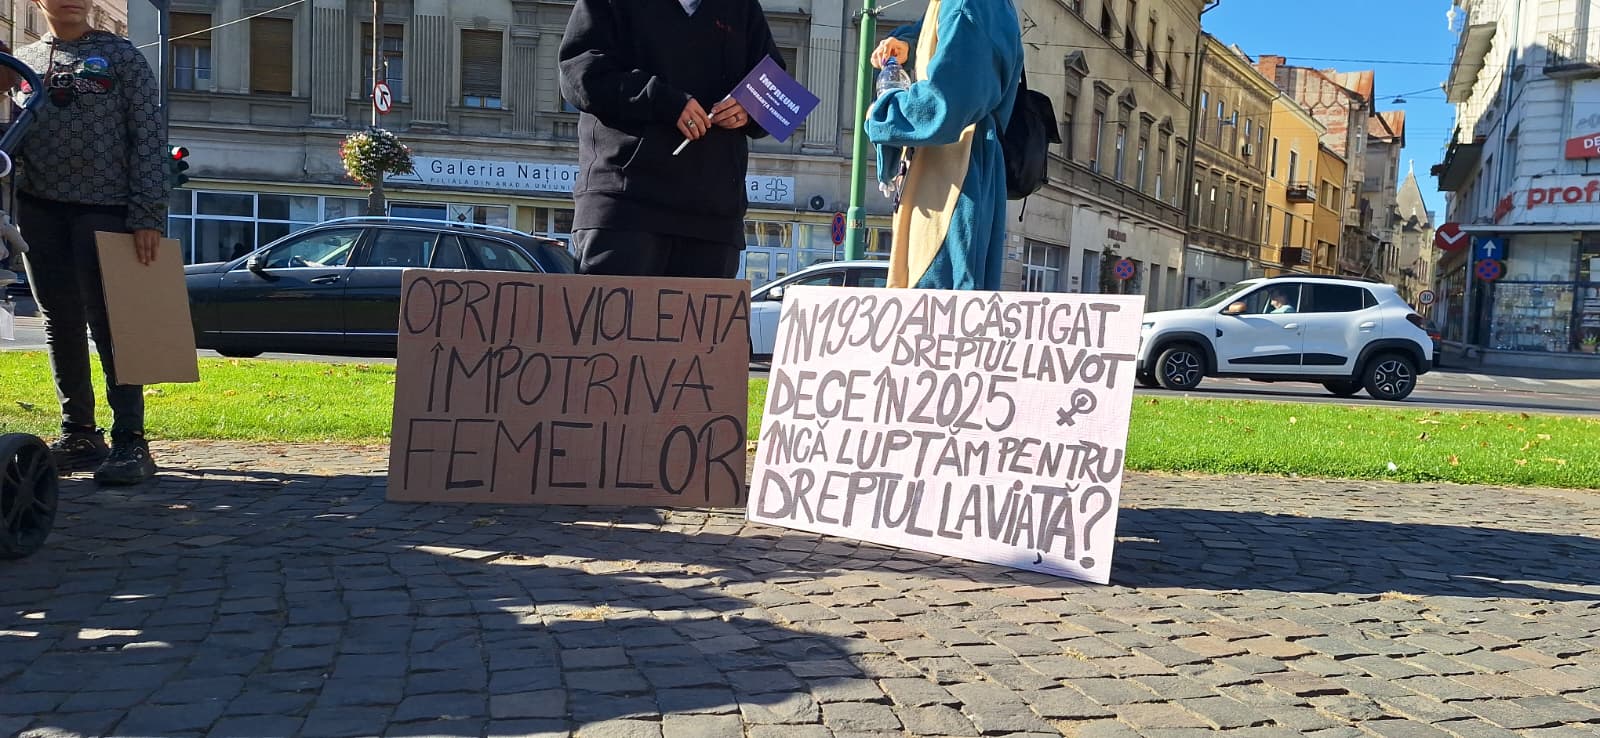 ÎMPREUNĂ
PENTRU
SIGURANȚA FEMEILOR!
Galeria Națion
FILIALA DIN ARAD A UNIUNII
OPRIȚI VIOLENȚA
ÎMPOTRIVA
FEMEILOR
ÎN 1930 AM CÂȘTIGAT
DREPTUL LA VOT
DECE ÎN 2025
ÎNCĂ LUPTĂM PENTRU
DREPTUL LA VIAȚĂ?
DE
profi
30